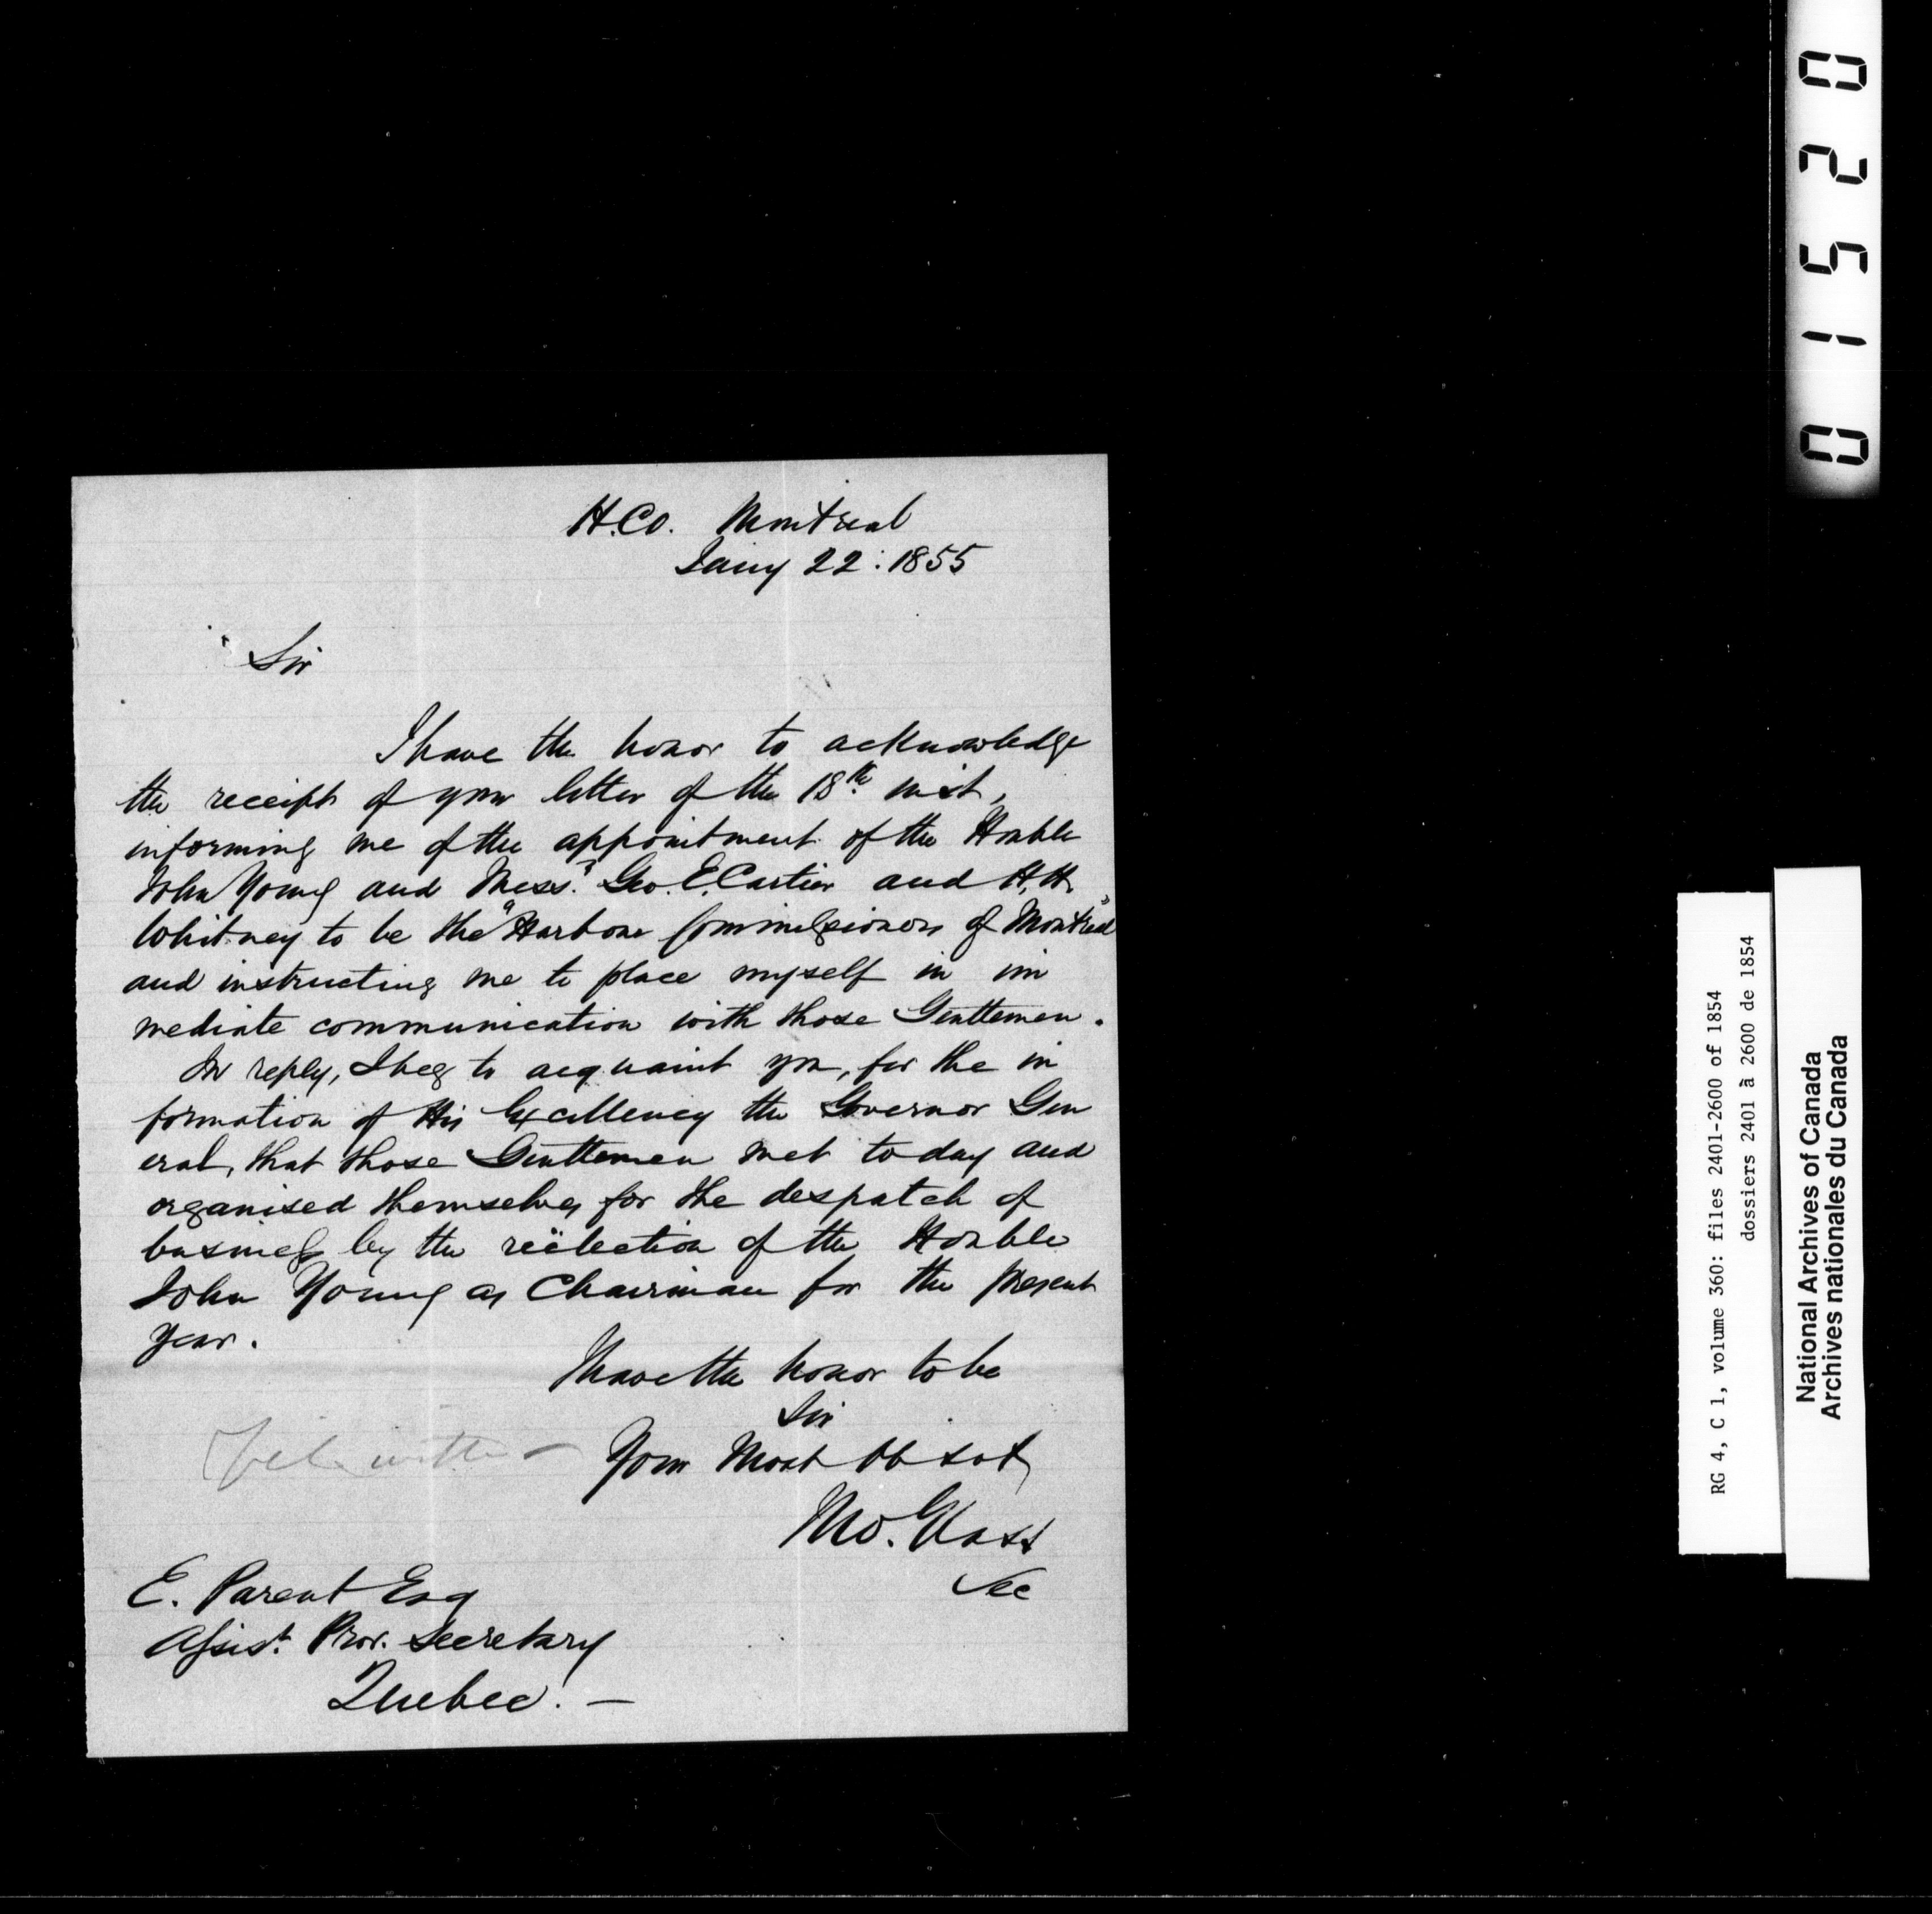 H.Co. Montreal
Jany 22: 1855
Sir
I have the honor to acknowledge
the receipt of your letter of the 18th inst,
informing me of the appointment of the Honble
John Young and Messrs Geo. E. Cartier and H. H.
Whitney to be the "Harbour Commissioners of Montreal"
and instructing me to place myself in im
mediate communication with those Gentlemen.
In reply, I beg to acquaint you, for the in
formation of His Excellency the Governor Gen
eral, that those Gentlemen met today and
organised themselves for the despatch of
business by the reëlection of the Honble
John Young as Chairman for the present
year.
I have the honor to be
Sir
File with -
Your Most Ob Sevt
Jno. Glass
Sec
E. Parent Esq
Assist. Prov. Secretary
Quebec. —
01520
RG 4, C 1, volume 360: files 2401-2600 of 1854
dossiers 2401 à 2600 de 1854
National Archives of Canada
Archives nationales du Canada